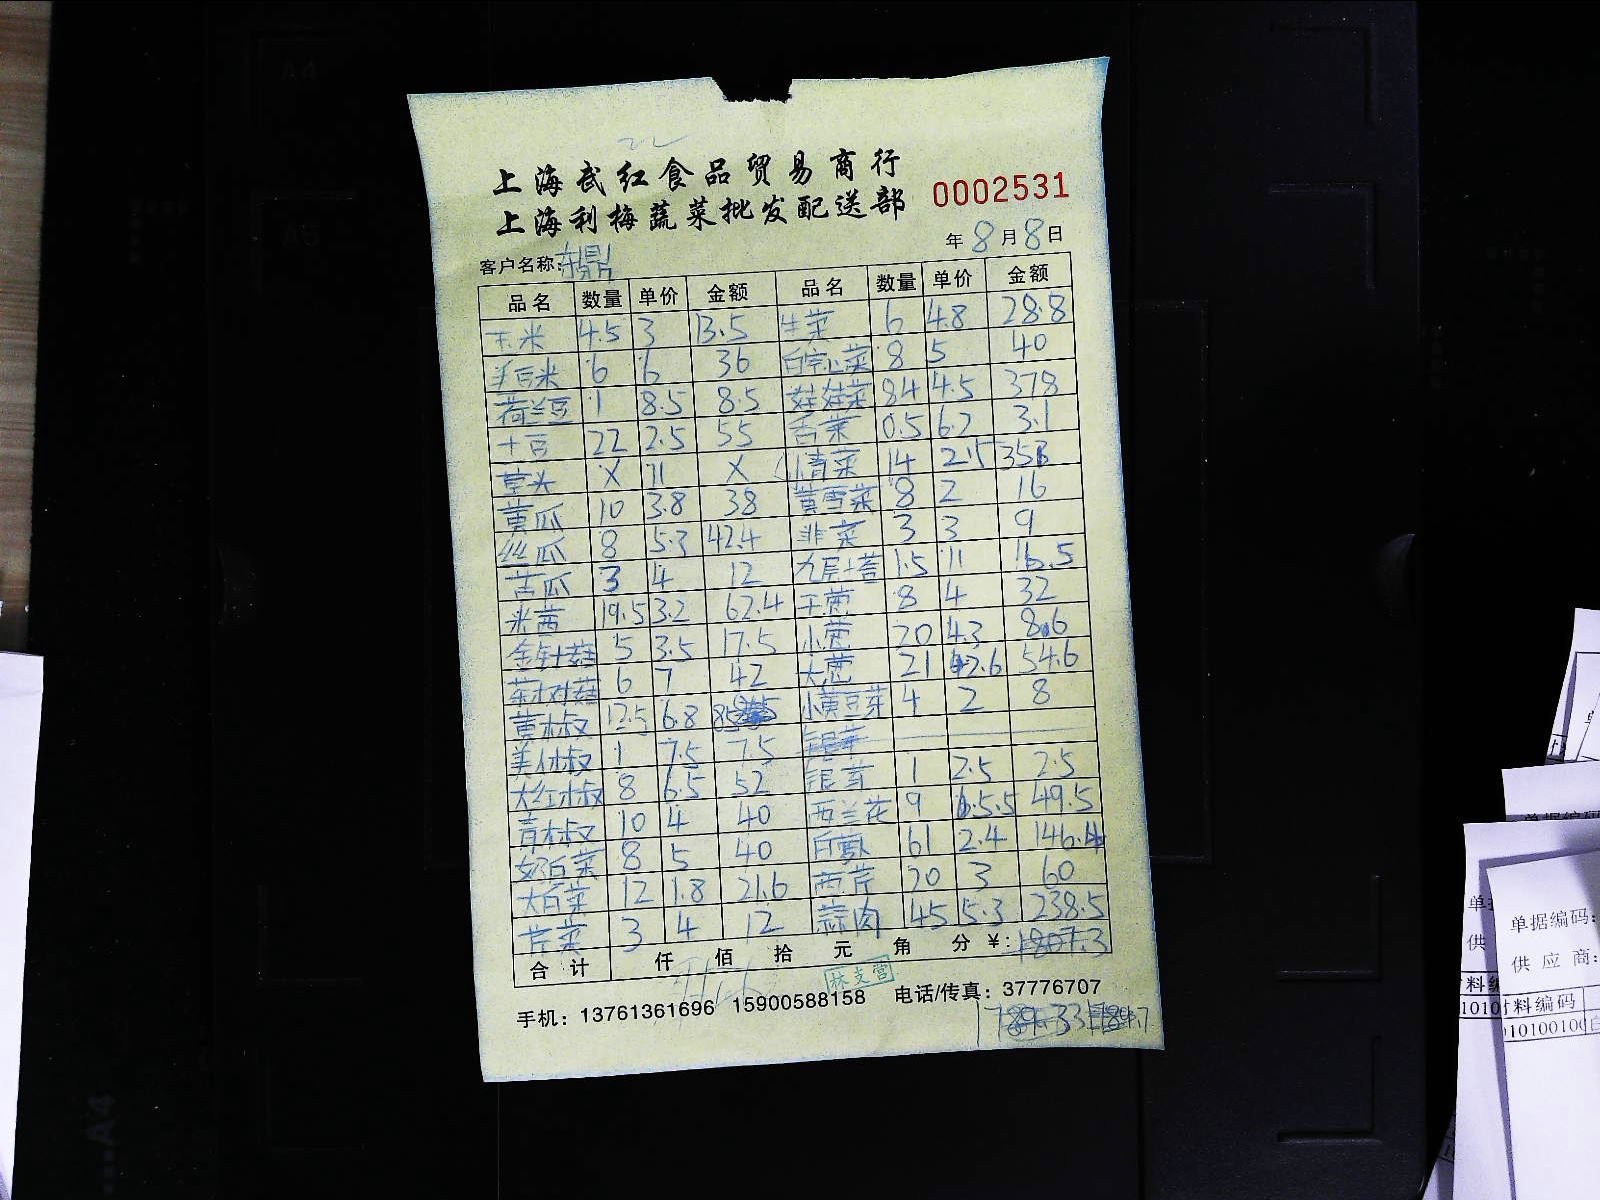 上海武红食品贸易商行
上海利梅蔬菜批发配送部 0002531
年 8 月 8 日
客户名称:
品名 数量 单价 金额 品名 数量 单价 金额
玉米 4.5 3 13.5 生菜 6 4.8 28.8
羊豆米 6 6 36 白空心菜 8 5 40
荷兰豆 1 8.5 8.5 娃娃菜 84 4.5 378
土豆 22 2.5 55 香菜 0.5 6.2 3.1
草头 X 11 X 小青菜 14 2.5 35
黄瓜 10 3.8 38 黄雪菜 8 2 16
丝瓜 8 5.3 42.4 韭菜 3 3 9
苦瓜 3 4 12 九层塔 1.5 11 16.5
米茜 19.5 3.2 62.4 干葱 8 4 32
金针菇 5 3.5 17.5 小葱 20 4.3 8.6
茶树菇 6 7 42 大葱 21 2.6 54.6
黄椒 12.5 6.8 85 小黄豆芽 4 2 8
美人椒 1 7.5 7.5
大红椒 8 6.5 52 银芽 1 2.5 2.5
青椒 10 4 40 西兰花 9 5.5 49.5
奶白菜 8 5 40 白萝卜 61 2.4 146.4
大白菜 12 1.8 21.6 西芹 20 3 60
芹菜 3 4 12 蒜肉 45 5.3 238.5
合计 仟 佰 拾 元 角 分 ¥: 1807.3
林支营
手机: 13761361696 15900588158 电话/传真: 37776707
A4
单据编码:
供应商:
料编码